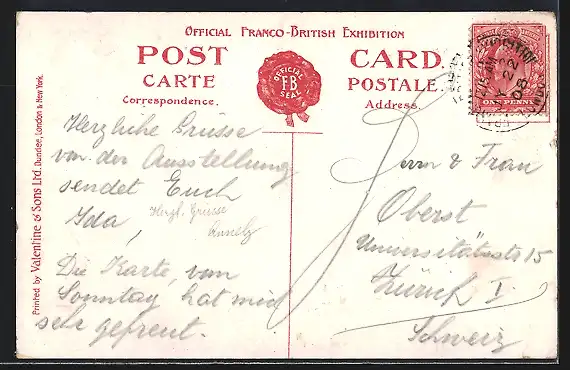 OFFICIAL FRANCO-BRITISH EXHIBITION
POST CARD.
CARTE POSTALE.
Correspondence. Address.
OFFICIAL
F.B
SEAL
ONE PENNY
22
08
Printed by Valentine & Sons Ltd. Dundee, London & New York.
Herzliche Grüsse
von der Ausstellung
sendet Euch
Ida,
Herzl. Grüsse
Die Karte, vom
Sonntag hat mich
sehr gefreut.
Herrn & Frau
Oberst
Universitätsstr 15
Zürich I.
Schweiz